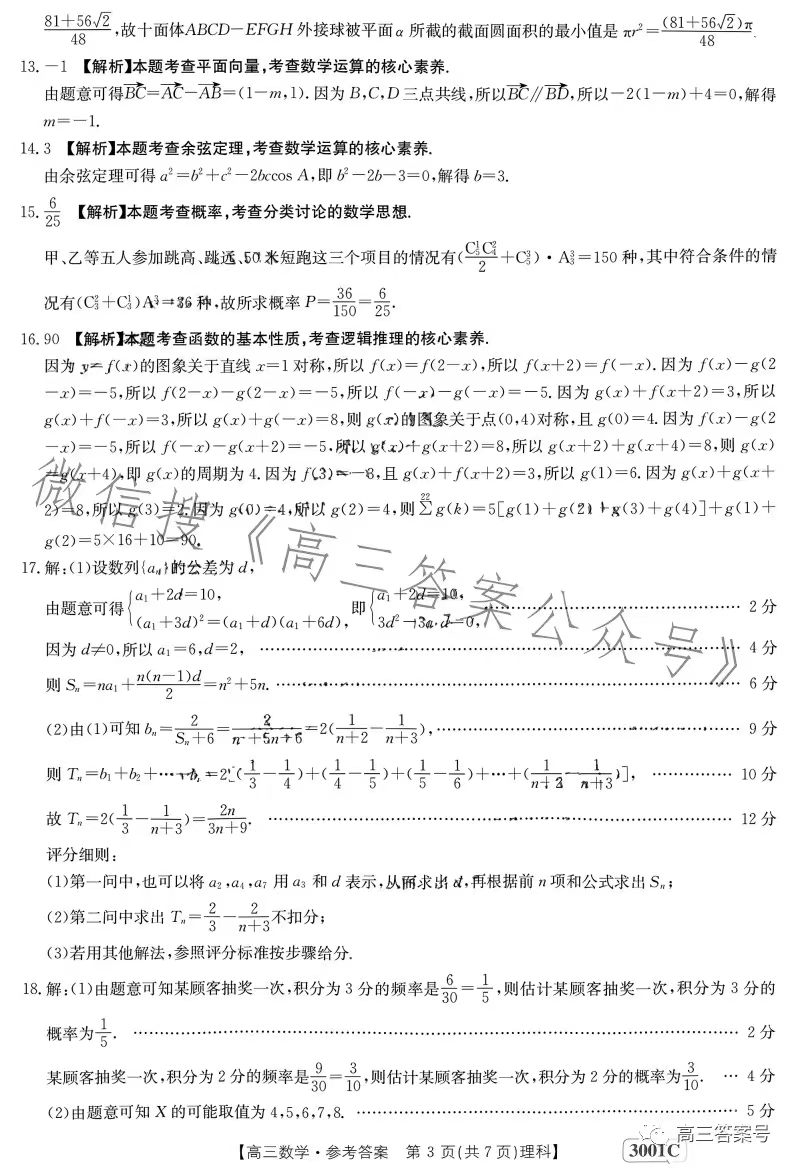 (81+56√2)/48,故十面体ABCD-EFGH外接球被平面α所截的截面圆面积的最小值是πr²=(81+56√2)π/48.
13.-1 【解析】本题考查平面向量,考查数学运算的核心素养.
由题意可得BC=AC-AB=(1-m,1).因为B,C,D三点共线,所以BC∥BD,所以-2(1-m)+4=0,解得
m=-1.
14.3 【解析】本题考查余弦定理,考查数学运算的核心素养.
由余弦定理可得a²=b²+c²-2bccos A,即b²-2b-3=0,解得b=3.
15. 6/25 【解析】本题考查概率,考查分类讨论的数学思想.
甲、乙等五人参加跳高、跳远、50米短跑这三个项目的情况有(C₅¹C₄²/2+C₅³)·A₃³=150种,其中符合条件的情
况有(C₃²+C₃¹)A₃³=36种,故所求概率P=36/150=6/25.
16.90 【解析】本题考查函数的基本性质,考查逻辑推理的核心素养.
因为y=f(x)的图象关于直线x=1对称,所以f(x)=f(2-x),所以f(x+2)=f(-x).因为f(x)-g(2
-x)=-5,所以f(2-x)-g(2-x)=-5,所以f(-x)-g(-x)=-5.因为g(x)+f(x+2)=3,所以
g(x)+f(-x)=3,所以g(x)+g(-x)=8,则g(x)的图象关于点(0,4)对称,且g(0)=4.因为f(x)-g(2
-x)=-5,所以f(-x)-g(x+2)=-5,所以g(x)+g(x+2)=8,所以g(x+2)+g(x+4)=8,则g(x)
=g(x+4),即g(x)的周期为4.因为f(3)=-3,且g(x)+f(x+2)=3,所以g(1)=6.因为g(x)+g(x+
2)=8,所以g(3)=2.因为g(0)=4,所以g(2)=4,则∑²²g(k)=5[g(1)+g(2)+g(3)+g(4)]+g(1)+
g(2)=5×16+10=90.
17.解:(1)设数列{aₙ}的公差为d,
由题意可得{a₁+2d=10,(a₁+3d)²=(a₁+d)(a₁+6d),即{a₁+2d=10,3d²-3a₁d=0,…… 2分
因为d≠0,所以a₁=6,d=2,…… 4分
则Sₙ=na₁+n(n-1)d/2=n²+5n.…… 6分
(2)由(1)可知bₙ=2/(Sₙ+6)=2/(n²+5n+6)=2(1/(n+2)-1/(n+3)),…… 9分
则Tₙ=b₁+b₂+…+bₙ=2[(1/3-1/4)+(1/4-1/5)+(1/5-1/6)+…+(1/(n+2)-1/(n+3))],…… 10分
故Tₙ=2(1/3-1/(n+3))=2n/(3n+9).…… 12分
评分细则:
(1)第一问中,也可以将a₂,a₄,a₇用a₃和d表示,从而求出d,再根据前n项和公式求出Sₙ;
(2)第二问中求出Tₙ=2/3-2/(n+3)不扣分;
(3)若用其他解法,参照评分标准按步骤给分.
18.解:(1)由题意可知某顾客抽奖一次,积分为3分的频率是6/30=1/5,则估计某顾客抽奖一次,积分为3分的
概率为1/5.…… 2分
某顾客抽奖一次,积分为2分的频率是9/30=3/10,则估计某顾客抽奖一次,积分为2分的概率为3/10.… 4分
(2)由题意可知X的可能取值为4,5,6,7,8.…… 5分
【高三数学·参考答案 第3页(共7页)理科】
3001C
高三答案号
微信搜《高三答案公众号》